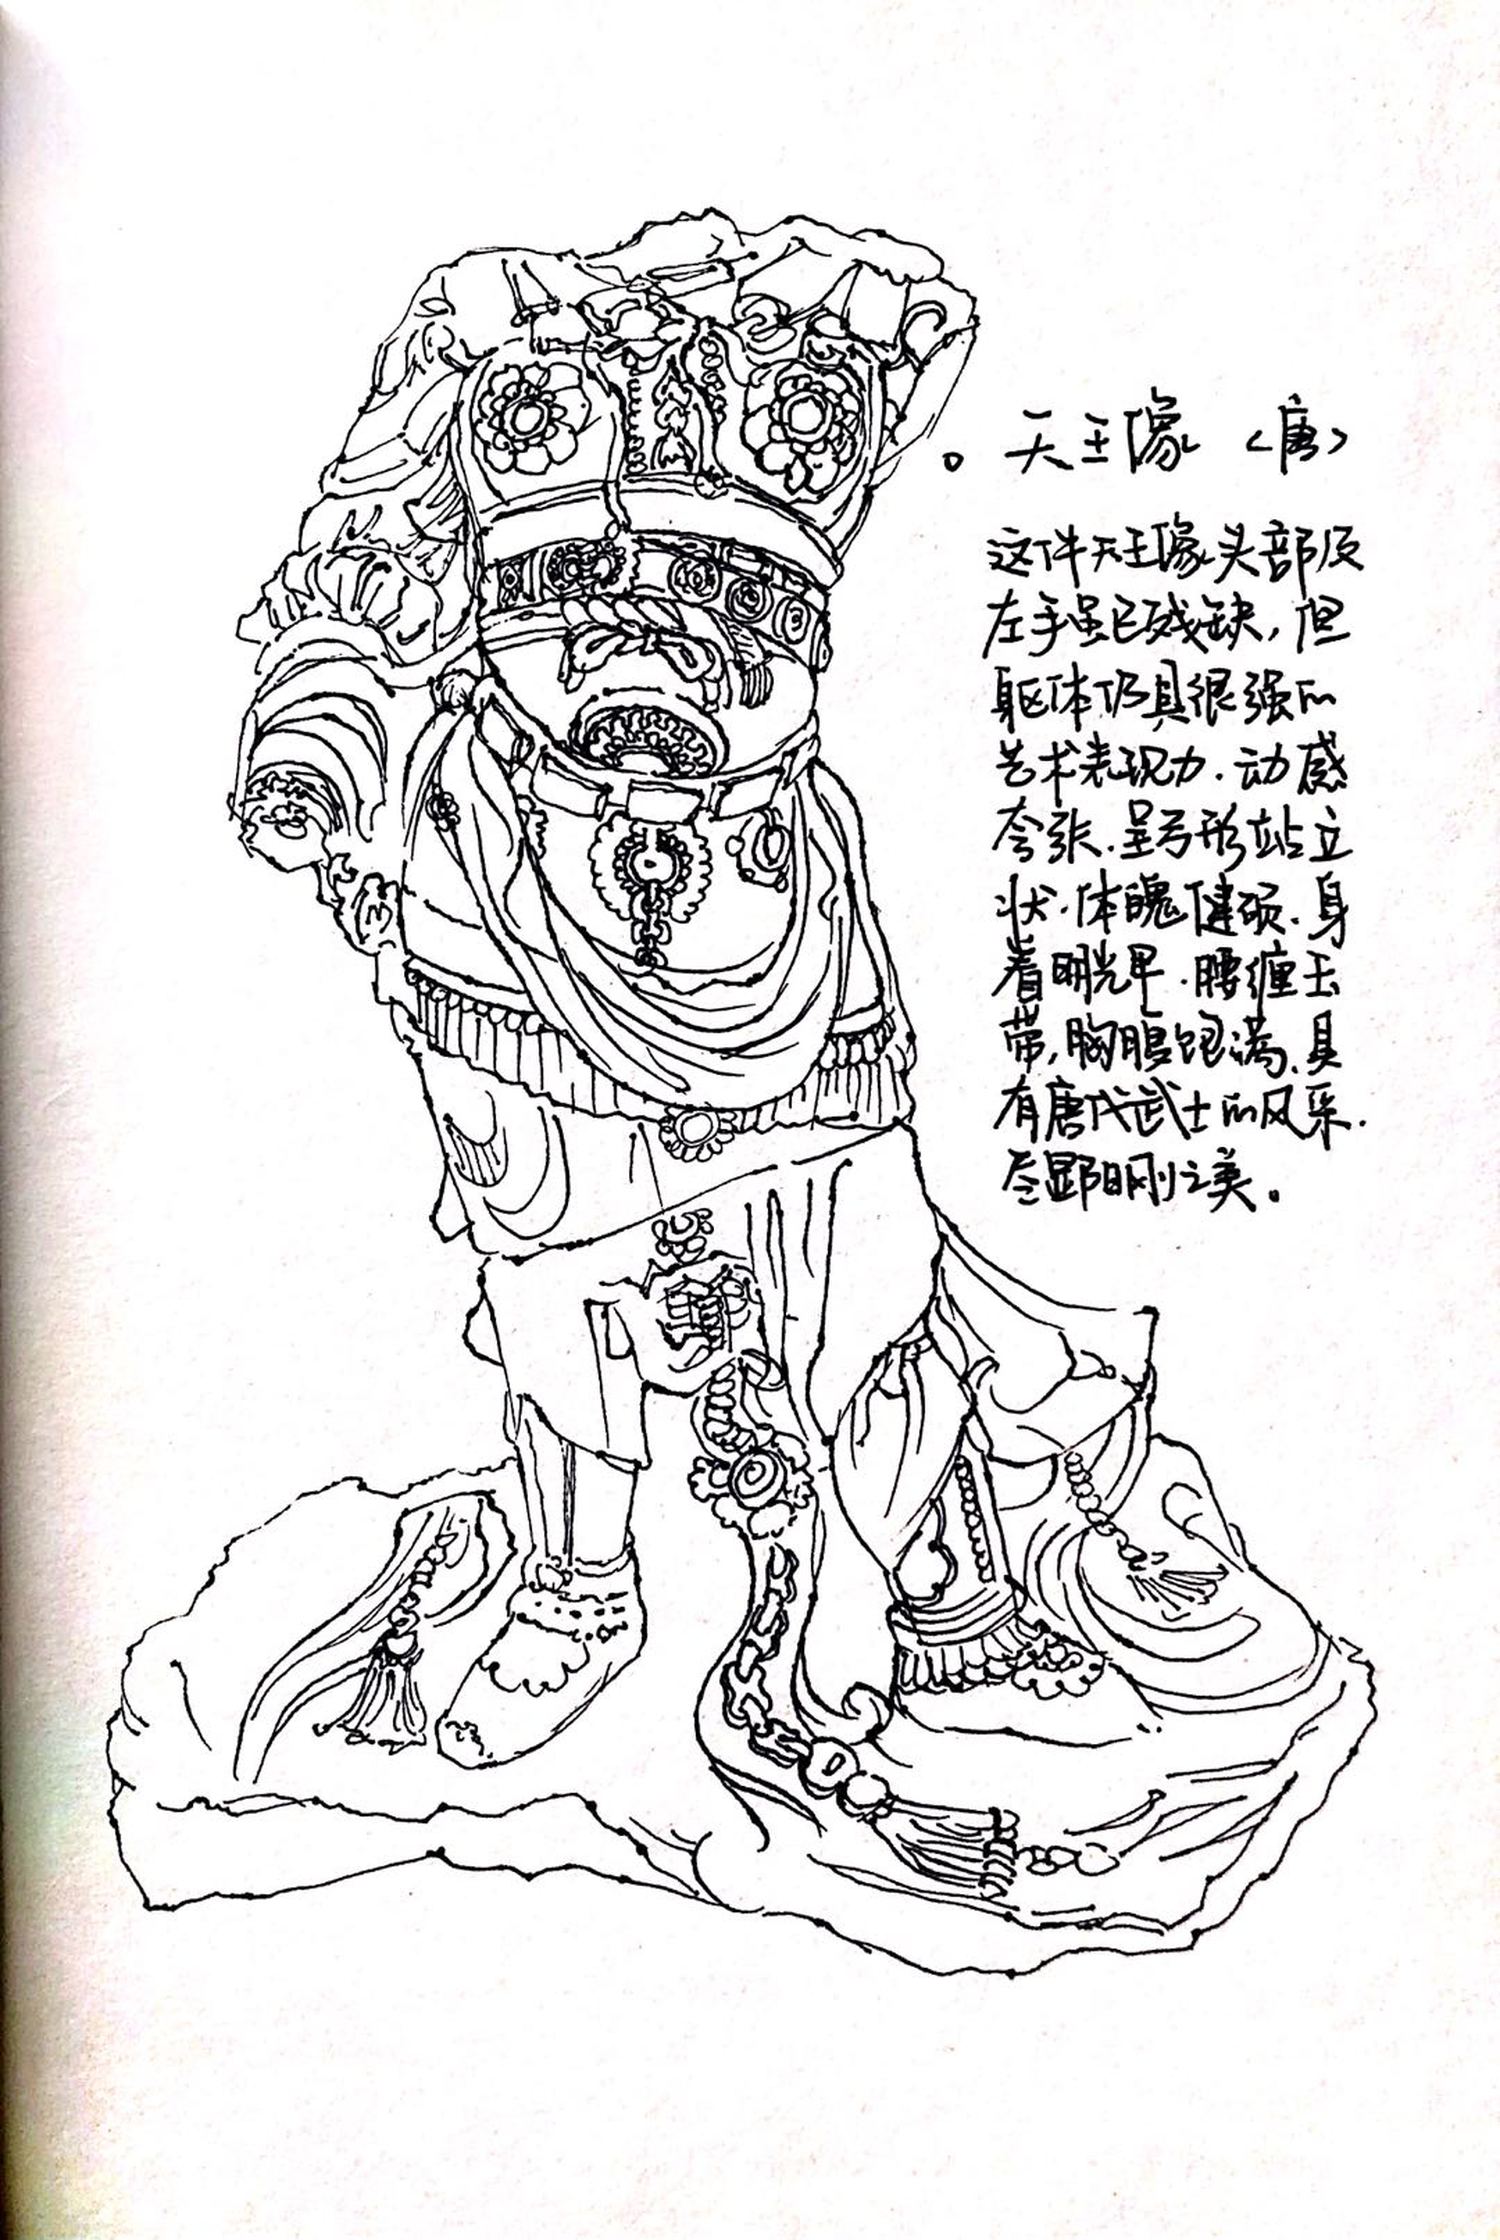 。天王像 <唐>
这件天王像头部及
左手虽已残缺,但
躯体仍具很强的
艺术表现力.动感
夸张.呈弓形站立
状.体魄健硕.身
着明光甲.腰缠玉
带,胸腹饱满.具
有唐代武士的风采.
尽显阳刚之美。